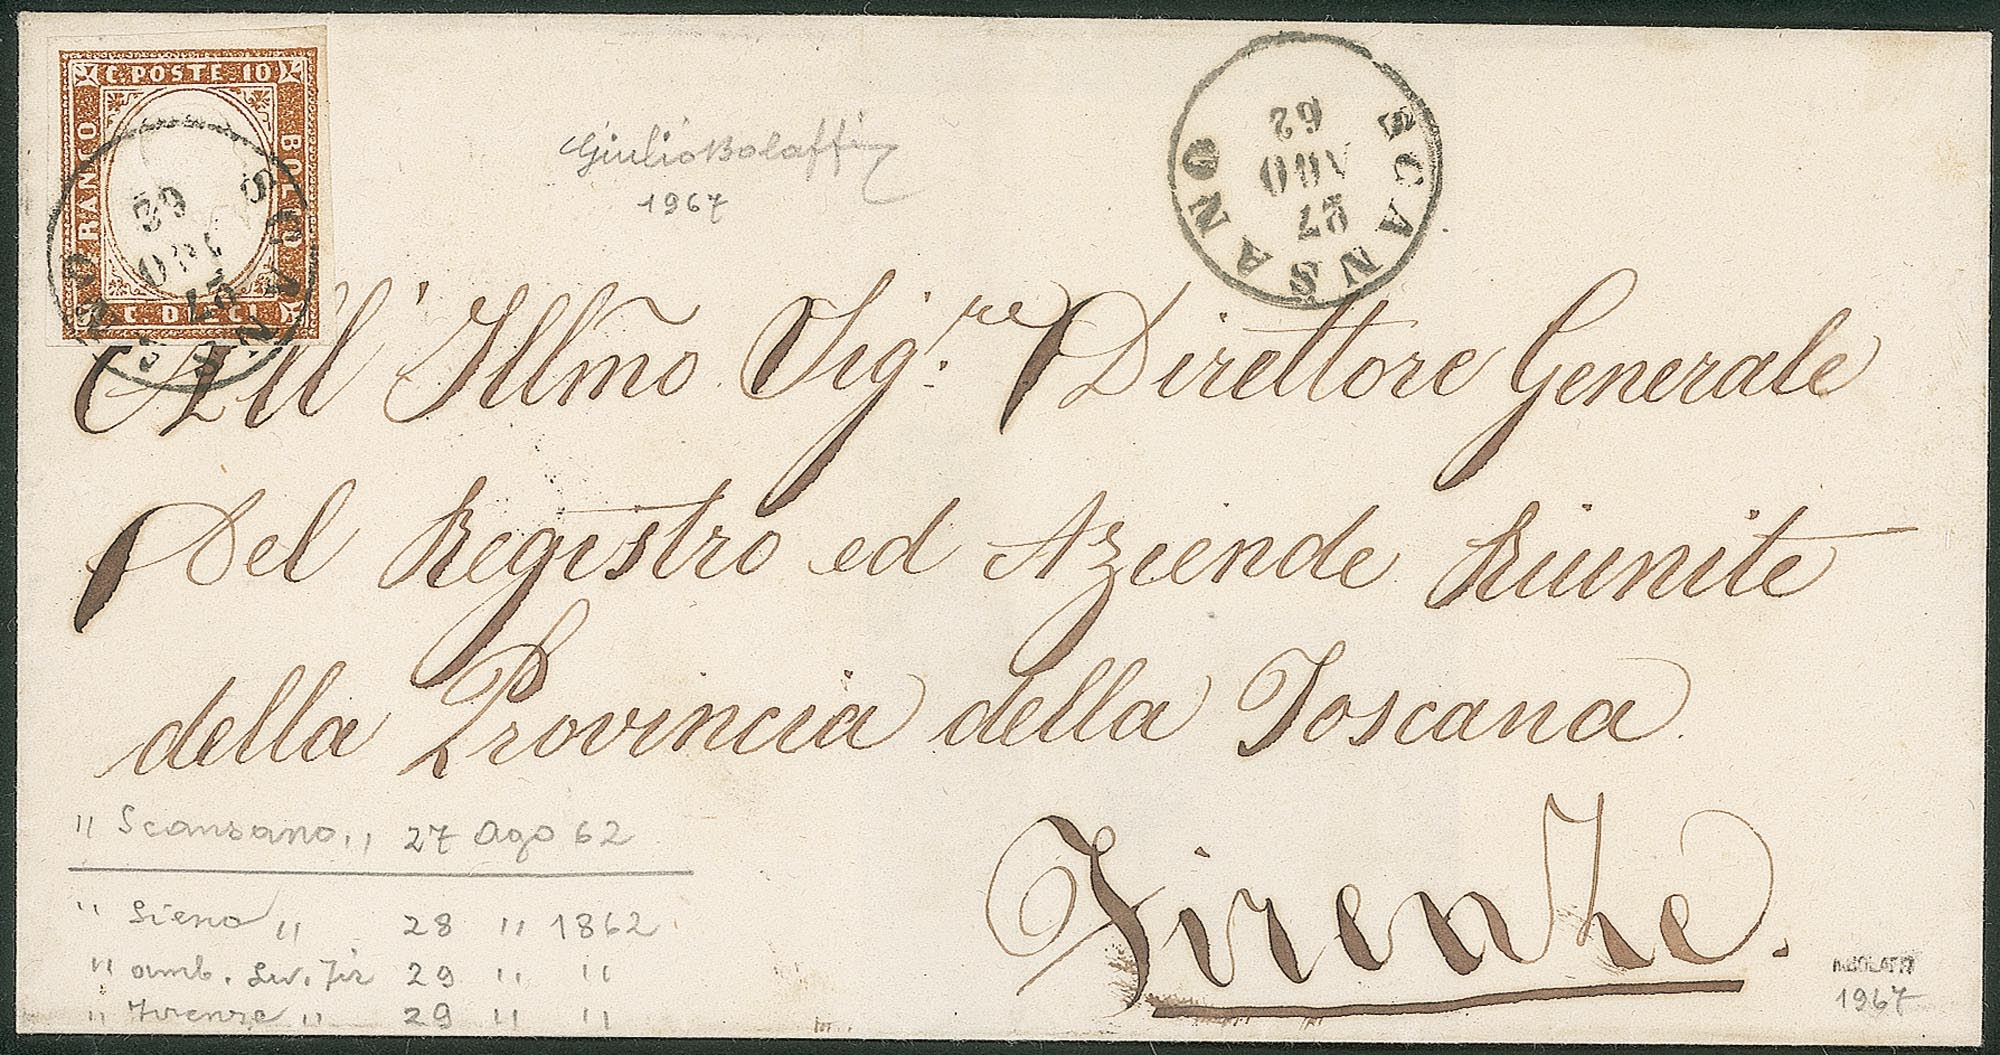 C. POSTE 10
FRANCO
BOLLO
C. DIECI
SCANSANO
27
AGO
62
Giulio Bolaffi
1967
SCANSANO
27
AGO
62
All' Illmo. Sig:re Direttore Generale
Del Registro ed Aziende Riunite
della Provincia della Toscana.
Firenze.
" Scansano " 27 Ago 62
" Siena " 28 " 1862
" amb. Liv. Fir 29 " "
" Firenze " 29 " "
1967